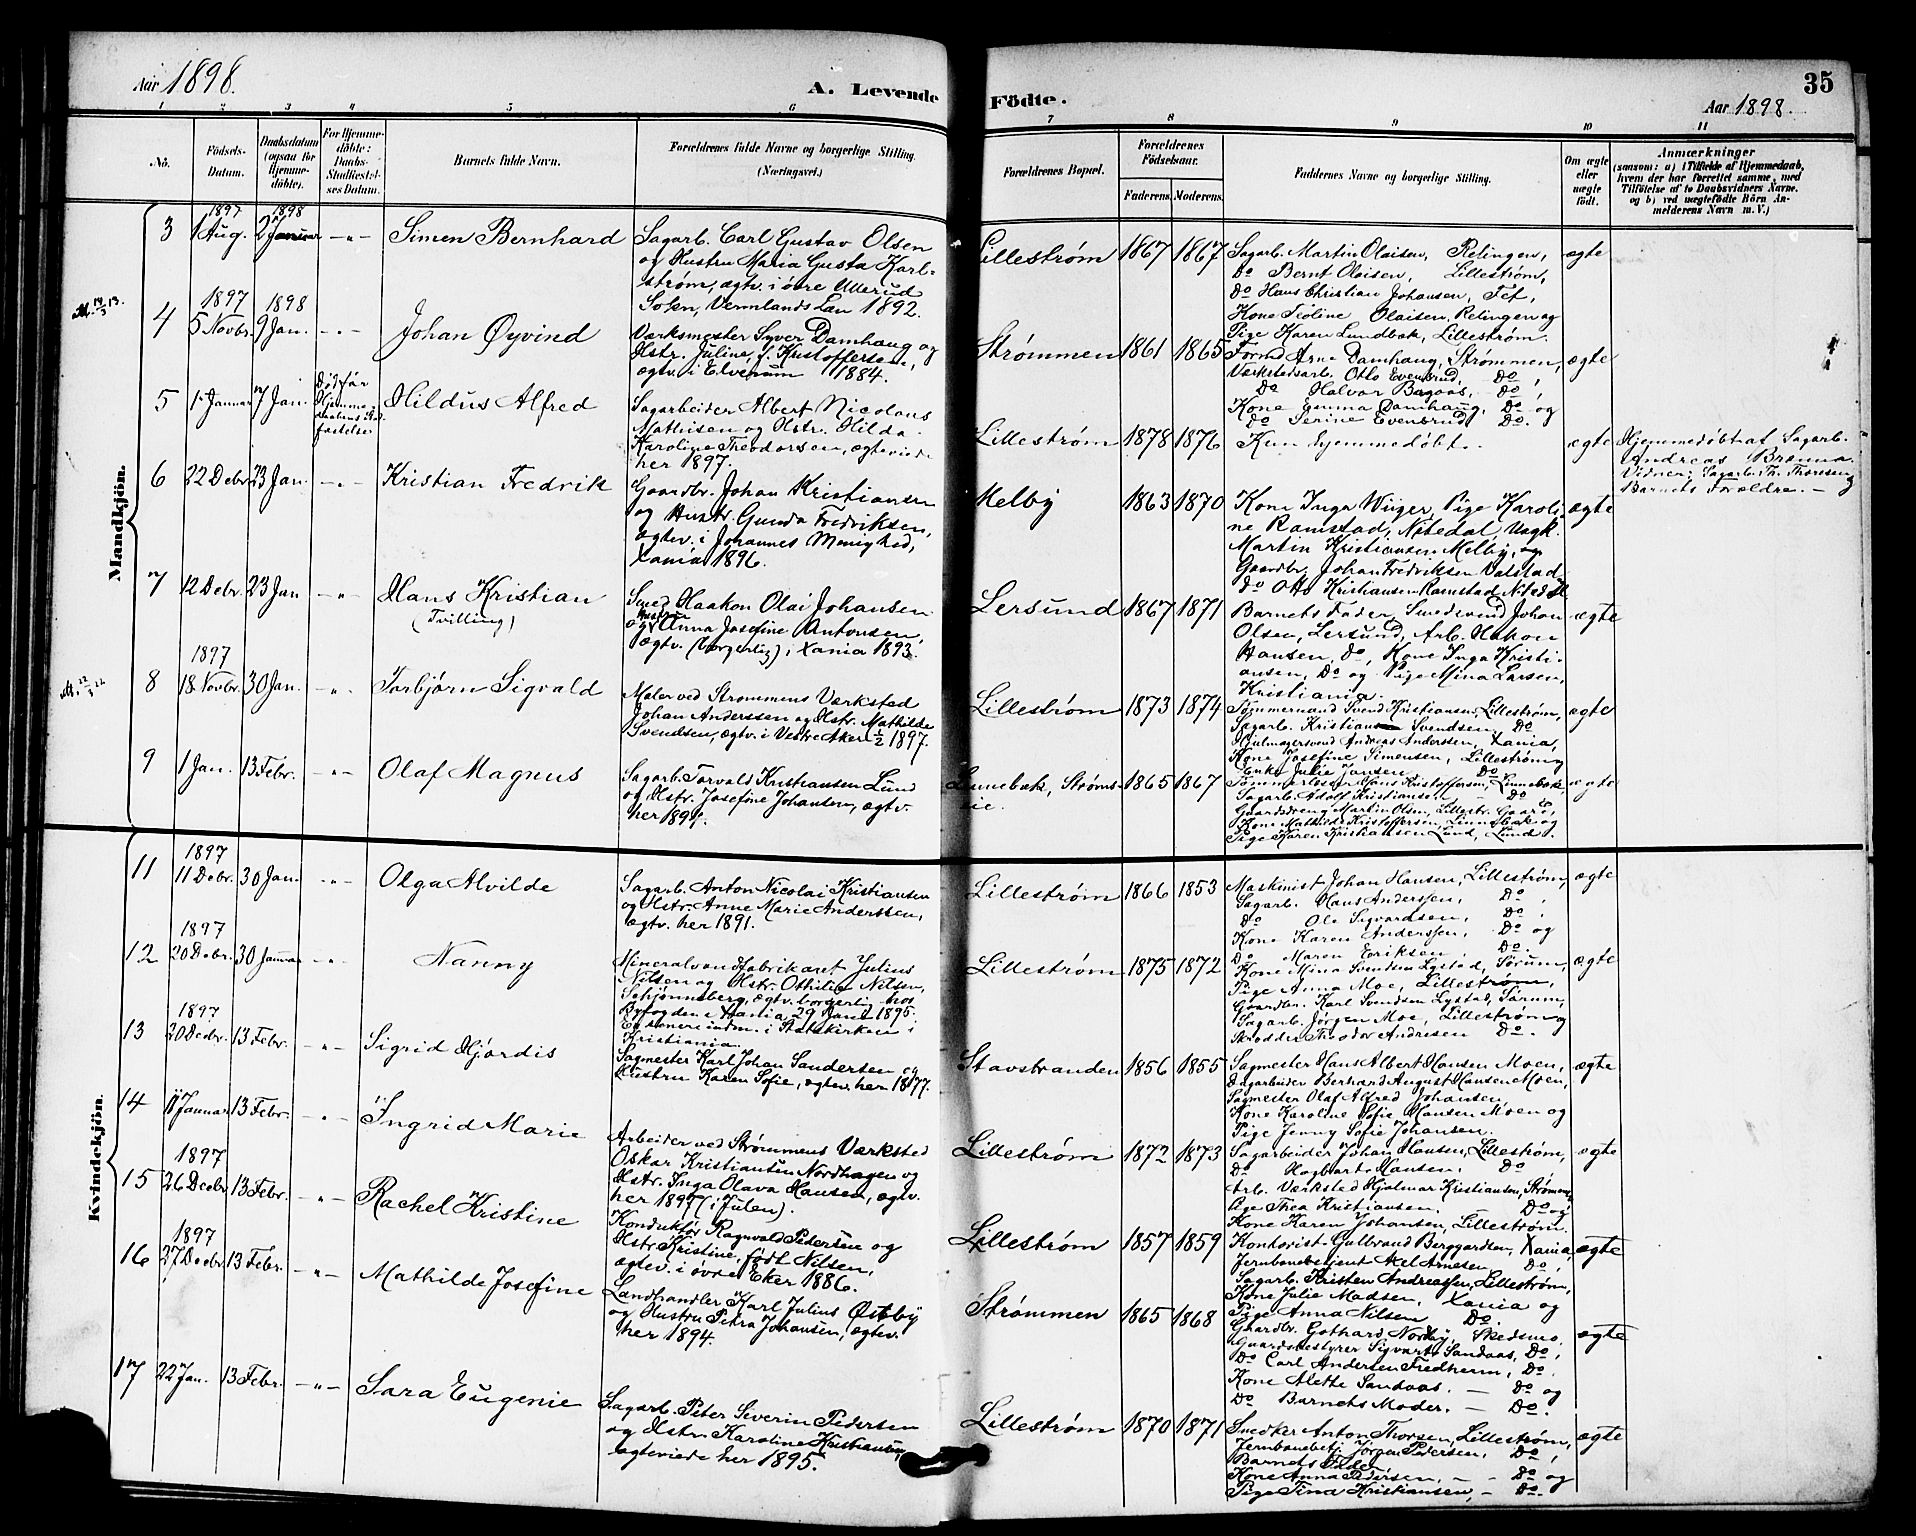 Aar 1898.
A. Levende Födte.
35
Aar 1898.
1 2 3 4 5 6 7 8 9 10 11
No.
Födsels-Datum.
Daabsdatum (ogsaa for Hjemmedöbte).
For Hjemmedöbte: Daabs-Stadfæstelses Datum.
Barnets fulde Navn.
Forældrenes fulde Navne og borgerlige Stilling. (Næringsvei.)
Forældrenes Bopæl.
Forældrenes Födselsaar.
Faderens. Moderens.
Faddernes Navne og borgerlige Stilling.
Om ægte eller uægte födt.
Anmærkninger
(saasom: a) i Tilfælde af Hjemmedaab,
hvem der har forrettet samme, med
Tilföielse af to Daabsvidners Navne.
og b) ved uægtefödte Börn An-
melderens Navn m. V.)
Mandkjön.
3 1897 1 Aug. 1898 2 Januar -"- Simen Bernhard
Sagarb. Carl Gustav Olsen
og Hustru Maria Gusta Karl-
strøm, ægtv. i övre Ullerud
Sokn, Vermlands Län 1892.
Lillestrøm 1867 1867
Sagarb. Martin Olaisen, Relingen,
Do Bernt Olaisen, Lillestrøm,
Do Hans Christian Johansen, Fet,
Kone Tioline Olaisen, Relingen og
Pige Karen Lundbak, Lillestrøm.
ægte
4 1897 5 Novbr. 1898 9 Jan. -"- Johan Øyvind
Værksmester Syver Damhaug og
Hstr. Juline, f. Kristoffersen,
ægtv. i Elverum 1884.
Strømmen 1861 1865
Formd Arne Damhaug, Strømmen,
Værkstedsarb. Otto Evenbrud, Do,
Do Halvor Bagaas, Do,
Kone Emma Damhaug, Do og
Do Serine Evenbrud Do.
ægte
5 1 Januar 7 Jan. Død før Hjemmedaabens Stadfæstelse Hildus Alfred
Sagarbeider Albert Nicolaus
Mathisen og Hstr. Hilda
Karoline Theodorsen, ægteviede
her 1897.
Lillestrøm 1878 1876
Kun hjemmedøbt.
ægte
Hjemmedøbt af Sagarb.
Andreas Brenna.
Vidner: Sagarb. Th. Thoresen og
Barnets Forældre. -
6 22 Debr. 23 Jan. -"- Kristian Fredrik
Gaardbr. Johan Kristiansen
og Hustr. Gunda Fredriksen,
ægtev. i Johannes Menighed,
Xania 1896.
Melby 1863 1870
Kone Inger Wüger, Pige Karoli-
ne Ramstad, Nitedal, Ungk.
Martin Kristiansen Melby, og
Gaardbr. Johan Fredriksen Valstad
Do Otto Kristiansen Ramstad, Nitedal
ægte
7 12 Debr. 23 Jan -"- Hans Kristian
(Tvilling)
Smed Haakon Olai Johansen
og Hustru Anna Josefine Antonsen,
ægtv. (borgerlig) i Xania 1893.
Lersund 1867 1871
Barnets Fader, Smedsvend Johan
Olsen, Lersund, Arb. Hakon
Hansen, do, Kone Inga Kristi-
ansen, Do og Pige Mina Larsen,
Kristiania.
ægte
8 1897 18 Novbr. 30 Jan. -"- Torbjørn Sigvald
Maler ved Strømmens Værksted
Johan Anderssen og Hstr. Mathilde
Svendsen, ægtv. i Vestre Aker ½ 1897.
Lillestrøm 1873 1874
Tömmermand Svend Kristiansen, Lillestrøm,
Sagarb. Kristian Svendsen Do
Hjulmagersvend Andreas Anderssen, Xania,
Kone Josefine Simensen, Lillestrøm og
Enke Julie Jansen Do.
ægte
9 1 Jan. 13 Febr. -"- Olaf Magnus
Sagarb. Torvald Kristiansen Lund
og Hstr. Josefine Johansen, ægtv.
her 1891.
Linnebæk, Strøms-
1865 1867
Tømmerlæser Hans Kristoffersen, Linnebæk
Sagarb. Adolf Kristiansen Do
Gaardsdreng Martin Olsen, Lillestr. Gaard,
Kone Mathilde Kristoffersen, Linnebæk og
Pige Karen Kristiansen Lund, Lund.
ægte
Kvindekjön.
11 1897 11 Debr. 30 Jan. -"- Olga Alvilde
Sagarb. Anton Nicolai Kristiansen
og Hstr. Anne Marie Anderssen,
ægtv. her 1891.
Lillestrøm 1866 1853
Maskinist Johan Hansen, Lillestrøm,
Sagarb. Hans Anderssen, Do,
Do Ole Sigvardsen, Do,
Kone Karen Anderssen, Do og
Do Maren Eriksen, Do.
ægte
12 1897 20 Debr. 30 Januar -"- Nanny
Mineralvandfabrikant Julius
Nilsen og Hstr. Othilie Nilsen,
Schjønneberg, ægtv. borgerlig hos
Byfogden i Xania 29 Juni 1895.
i Statskirken i
Kristiania.
Lillestrøm 1875 1872
Kone Mina Svendsen Lystad, Sørum,
Pige Anna Moe, Lillestrøm,
Gaardbr. Karl Svendsen Lystad, Sørum,
Sagarb. Jørgen Moe, Lillestrøm og
Skrædder Theodor Andresen Do.
ægte
13 1897 20 Decbr. 13 Febr. -"- Sigrid Hjørdis
Sagmester Karl Johan Sandersen og
Hustru Karen Sofie, ægtev. her 1877.
Stavstranden 1856 1855
Sagmester Hans Albert Hansen Moen,
Dagarbeider Berhard August Hansen Moen,
Sagmester Olaf Alfred Johansen,
Kone Karoline Sofie Hansen Moen og
Pige Jenny Sofie Johansen.
ægte
14 Januar 13 Febr. -"- Ingrid Marie
Arbeider ved Strømmens Værksted
Oskar Kristiansen Nordhagen og
Hstr. Inga Olava Hansen, ægtv.
her 1897 (i Julen).
Lillestrøm 1872 1873
Sagarbeider Johan Hansen, Lillestrøm,
Do Hagbart Hansen, Do,
Arb. Værksted Hjalmar Kristiansen, Strømmen,
Pige Thea Kristiansen, Do og
Kone Karen Johansen, Lillestrøm.
ægte
15 1897 26 Decbr. 13 Febr. -"- Rachel Kristine
Konduktør Ragnvald Pedersen og
Hstr. Kristine, født Nilsen,
ægtev. i övre Eker 1886.
Lillestrøm 1857 1859
Kontorist Gulbrand Berggardsen, Xania,
Jernbanebetjent Axel Arnesen Do,
Sagarb. Kristen Andreassen, Lillestrøm,
Kone Julie Madsen, Xania og
Pige Anna Nilsen Do.
ægte
16 1897 27 Decbr. 13 Febr. -"- Mathilde Josefine
Landhandler Karl Julius Østby
og Hustru Petra Johansen, ægtev.
her 1894.
Strømmen 1865 1868
Gaardbr. Gothard Nordby, Skedsmo,
Gaardsbestyrer Sigvart Sandaas, Do,
Do Carl Andersen Fredheim, Do,
Kone Alette Sandaas. - Do og
Do Barnets Moder. - Do.
ægte
17 22 Jan. 13 Febr. -"- Sara Eugenie
Sagarb. Peter Severin Pedersen
og Hstr. Karoline Kristiansen,
ægteviede her 1895.
Lillestrøm 1870 1871
Snedker Anton Thorsen, Lillestrøm,
Jernbanebetj. Jörgen Pedersen, Do,
Barnets Fader,
Kone Anna Pedersen, - Do og
Pige Tina Kristiansen, - Do.
ægte